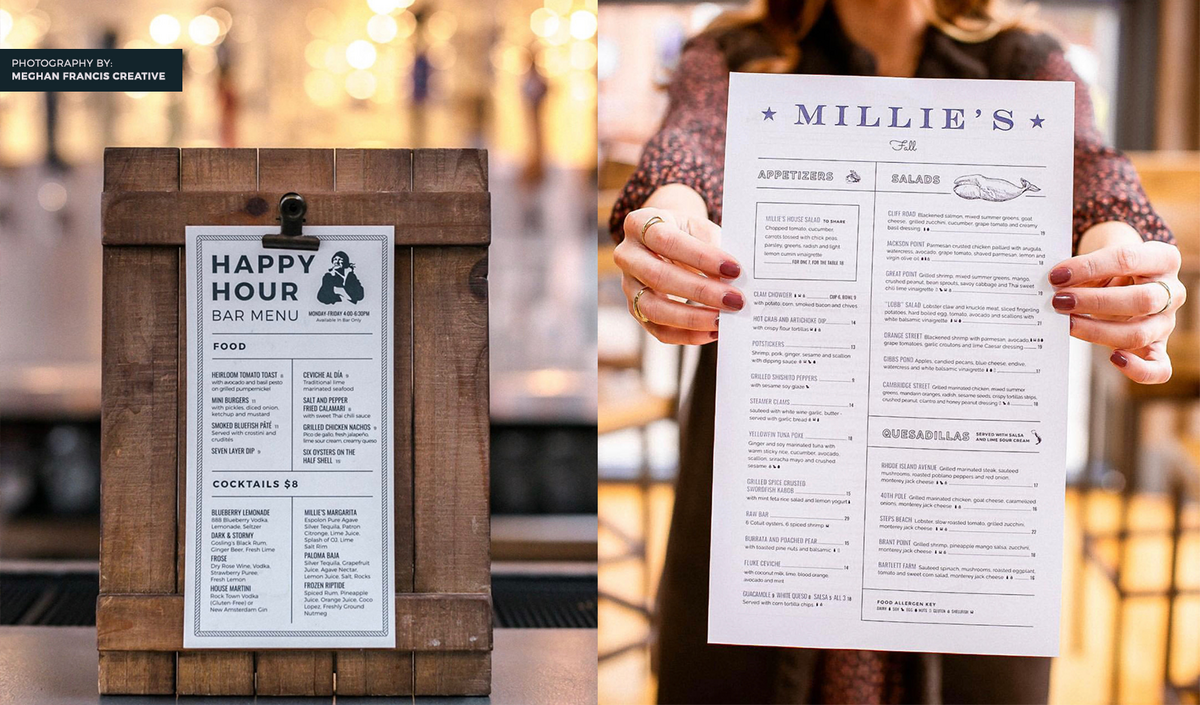 PHOTOGRAPHY BY:
MEGHAN FRANCIS CREATIVE
HAPPY
HOUR
BAR MENU
MONDAY-FRIDAY 4:00-6:30PM
Available in Bar Only
FOOD
HEIRLOOM TOMATO TOAST 8
with avocado and basil pesto
on grilled pumpernickel
MINI BURGERS 11
with pickles, diced onion,
ketchup and mustard
SMOKED BLUEFISH PÂTÉ 11
Served with crostini and
crudités
SEVEN LAYER DIP 9
CEVICHE AL DÍA 9
Traditional lime
marinated seafood
SALT AND PEPPER
FRIED CALAMARI 11
with sweet Thai chili sauce
GRILLED CHICKEN NACHOS 9
Pico de gallo, fresh jalapeño,
lime sour cream, creamy queso
SIX OYSTERS ON THE
HALF SHELL 10
COCKTAILS $8
BLUEBERRY LEMONADE
888 Blueberry Vodka,
Lemonade, Seltzer
DARK & STORMY
Gosling's Black Rum,
Ginger Beer, Fresh Lime
FROSE
Dry Rose Wine, Vodka,
Strawberry Puree,
Fresh Lemon
HOUSE MARTINI
Rock Town Vodka
(Gluten-Free) or
New Amsterdam Gin
MILLIE'S MARGARITA
Espolon Pure Agave
Silver Tequila, Patron
Citronge, Lime Juice,
Splash of OJ, Lime
Salt Rim
PALOMA BAJA
Silver Tequila, Grapefruit
Juice, Agave Nectar,
Lemon Juice, Salt, Rocks
FROZEN RIPTIDE
Spiced Rum, Pineapple
Juice, Orange Juice, Coco
Lopez, Freshly Ground
Nutmeg
MILLIE'S
Fall
APPETIZERS
MILLIE'S HOUSE SALAD TO SHARE
Chopped tomato, cucumber,
carrots tossed with chick peas,
parsley, greens, radish and light
lemon cumin vinaigrette
FOR ONE 7, FOR THE TABLE 18
CLAM CHOWDER CUP 6, BOWL 9
with potato, corn, smoked bacon and chives
HOT CRAB AND ARTICHOKE DIP 14
with crispy flour tortillas
POTSTICKERS 13
Shrimp, pork, ginger, sesame and scallion
with dipping sauce
GRILLED SHISHITO PEPPERS 9
with sesame soy glaze
STEAMER CLAMS 14
sauteed with white wine-garlic, butter -
served with garlic bread
YELLOWFIN TUNA POKE 16
Ginger and soy marinated tuna with
warm sticky rice, cucumber, avocado,
scallion, sriracha mayo and crushed
sesame
GRILLED SPICE CRUSTED
SWORDFISH KABOB 15
with mint feta rice salad and lemon yogurt
RAW BAR 20
6 Cotuit oysters, 6 spiced shrimp
BURRATA AND POACHED PEAR 15
with toasted pine nuts and balsamic
FLUKE CEVICHE 14
with coconut milk, lime, blood orange,
avocado and mint
GUACAMOLE 8 WHITE QUESO SALSA 5 ALL 3 18
Served with corn tortilla chips,
SALADS
CLIFF ROAD Blackened salmon, mixed summer greens, goat
cheese, grilled zucchini, cucumber, grape tomato and creamy
basil dressing 19
JACKSON POINT Parmesan crusted chicken paillard with arugula,
watercress, avocado, grape tomato, shaved parmesan, lemon and
virgin olive oil 18
GREAT POINT Grilled shrimp, mixed summer greens, mango,
crushed peanut, bean sprouts, savoy cabbage and Thai sweet
chili lime vinaigrette 19
"LOBB" SALAD Lobster claw and knuckle meat, sliced fingerling
potatoes, hard boiled egg, tomato, avocado and scallions with
white balsamic vinaigrette 21
ORANGE STREET Blackened shrimp with parmesan, avocado,
grape tomatoes, garlic croutons and lime Caesar dressing 19
GIBBS POND Apples, candied pecans, blue cheese, endive,
watercress and white balsamic vinaigrette 17
CAMBRIDGE STREET Grilled marinated chicken, mixed summer
greens, mandarin oranges, radish, sesame seeds, crispy tortilla strips,
crushed peanut, cilantro and honey peanut dressing 18
QUESADILLAS
SERVED WITH SALSA
AND LIME SOUR CREAM
RHODE ISLAND AVENUE Grilled marinated steak, sauteed
mushrooms, roasted poblano peppers and red onion,
monterey jack cheese 17
40TH POLE Grilled marinated chicken, goat cheese, caramelized
onions, monterey jack cheese 16
STEPS BEACH Lobster, slow roasted tomato, grilled zucchini,
monterey jack cheese 22
BRANT POINT Grilled shrimp, pineapple mango salsa, zucchini,
monterey jack cheese 18
BARTLETT FARM Sauteed spinach, mushrooms, roasted eggplant,
tomato and sweet corn salad, monterey jack cheese 16
FOOD ALLERGEN KEY
DAIRY SOY EGG NUTS GLUTEN SHELLFISH